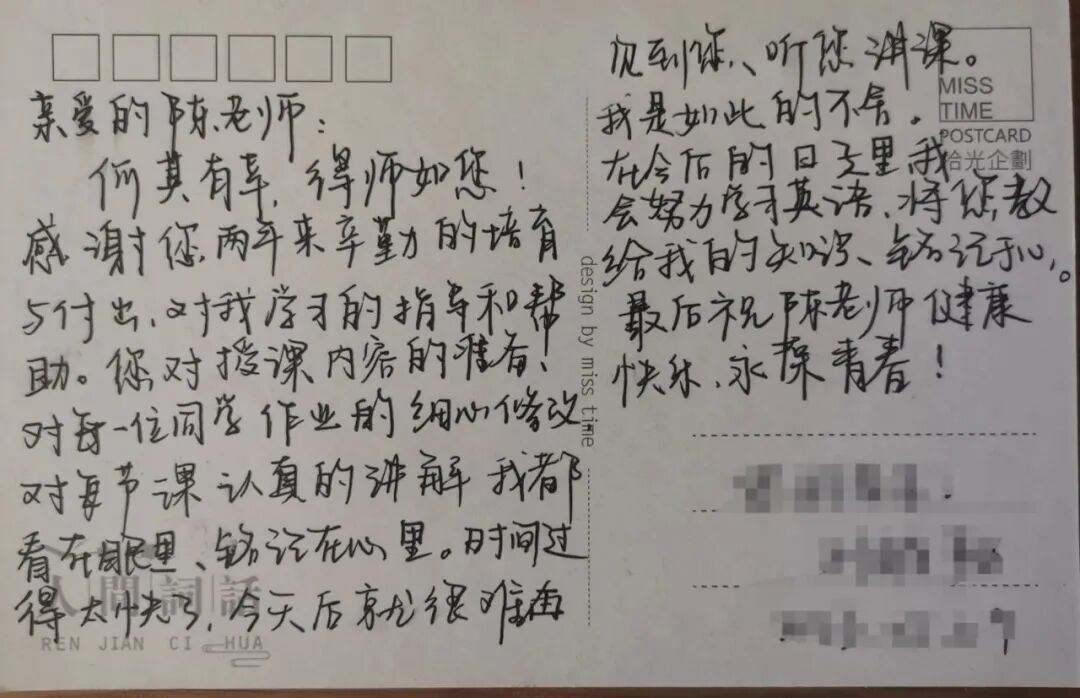 亲爱的陈老师:
何其有幸,得师如您!
感谢您两年来辛勤的培育
与付出、对我学习的指导和帮
助。您对授课内容的准备、
对每一位同学作业的细心修改,
对每节课认真的讲解我都
看在眼里、铭记在心里。时间过
得太快了,今天后就很难再
人間詞話
REN JIAN CI HUA
design by miss time
见到您、听您讲课。
我是如此的不舍。
在今后的日子里我
会努力学习英语、将您教
给我的知识、铭记于心。
最后祝陈老师健康
快乐、永葆青春!
MISS
TIME
POSTCARD
拾光企劃